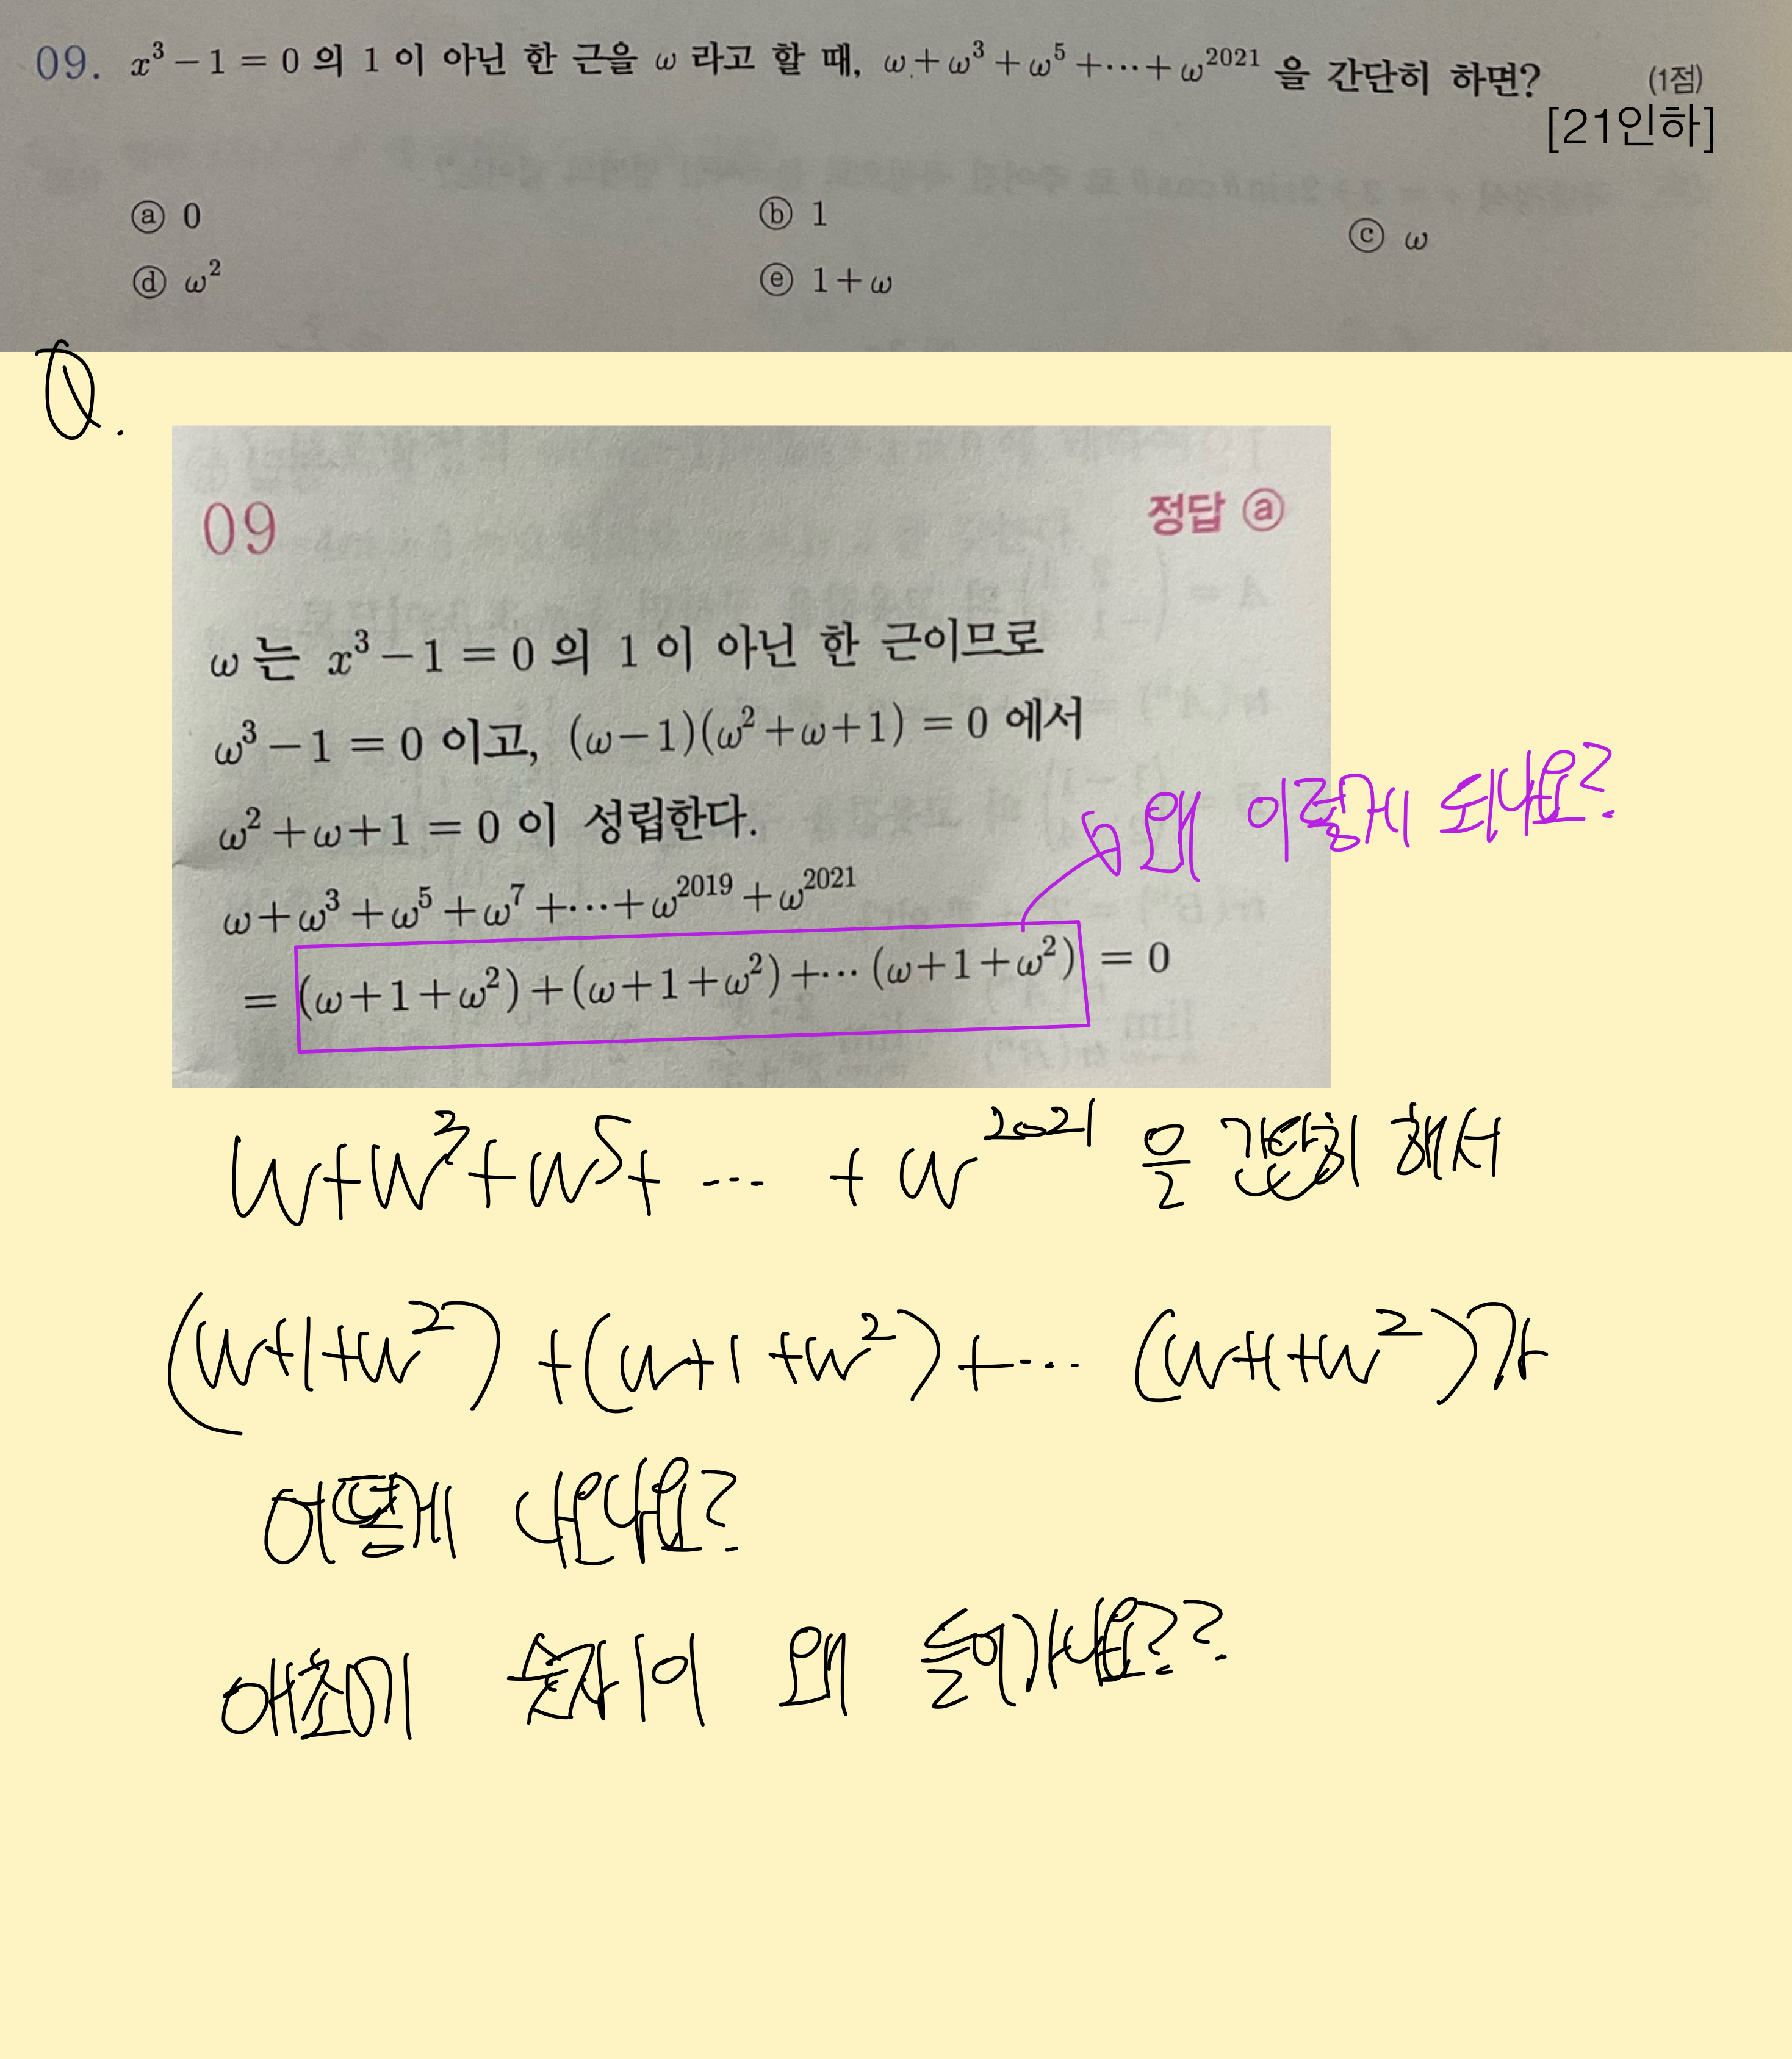 09. x³ − 1 = 0 의 1 이 아닌 한 근을 ω 라고 할 때, ω + ω³ + ω⁵ + ⋯ + ω²⁰²¹ 을 간단히 하면? (1점)
[21인하]
ⓐ 0 ⓑ 1 ⓒ ω
ⓓ ω² ⓔ 1 + ω
Q.
09 정답 ⓐ
ω 는 x³ − 1 = 0 의 1 이 아닌 한 근이므로
ω³ − 1 = 0 이고, (ω − 1)(ω² + ω + 1) = 0 에서
ω² + ω + 1 = 0 이 성립한다.
왜 이렇게 되나요?
ω + ω³ + ω⁵ + ω⁷ + ⋯ + ω²⁰¹⁹ + ω²⁰²¹
= (ω + 1 + ω²) + (ω + 1 + ω²) + ⋯ (ω + 1 + ω²) = 0
w + w³ + w⁵ + ⋯ + w²⁰²¹ 을 간단히 해서
(w + 1 + w²) + (w + 1 + w²) + ⋯ (w + 1 + w²)가
어떻게 나오나요?
애초에 숫자 1이 왜 들어가나요??